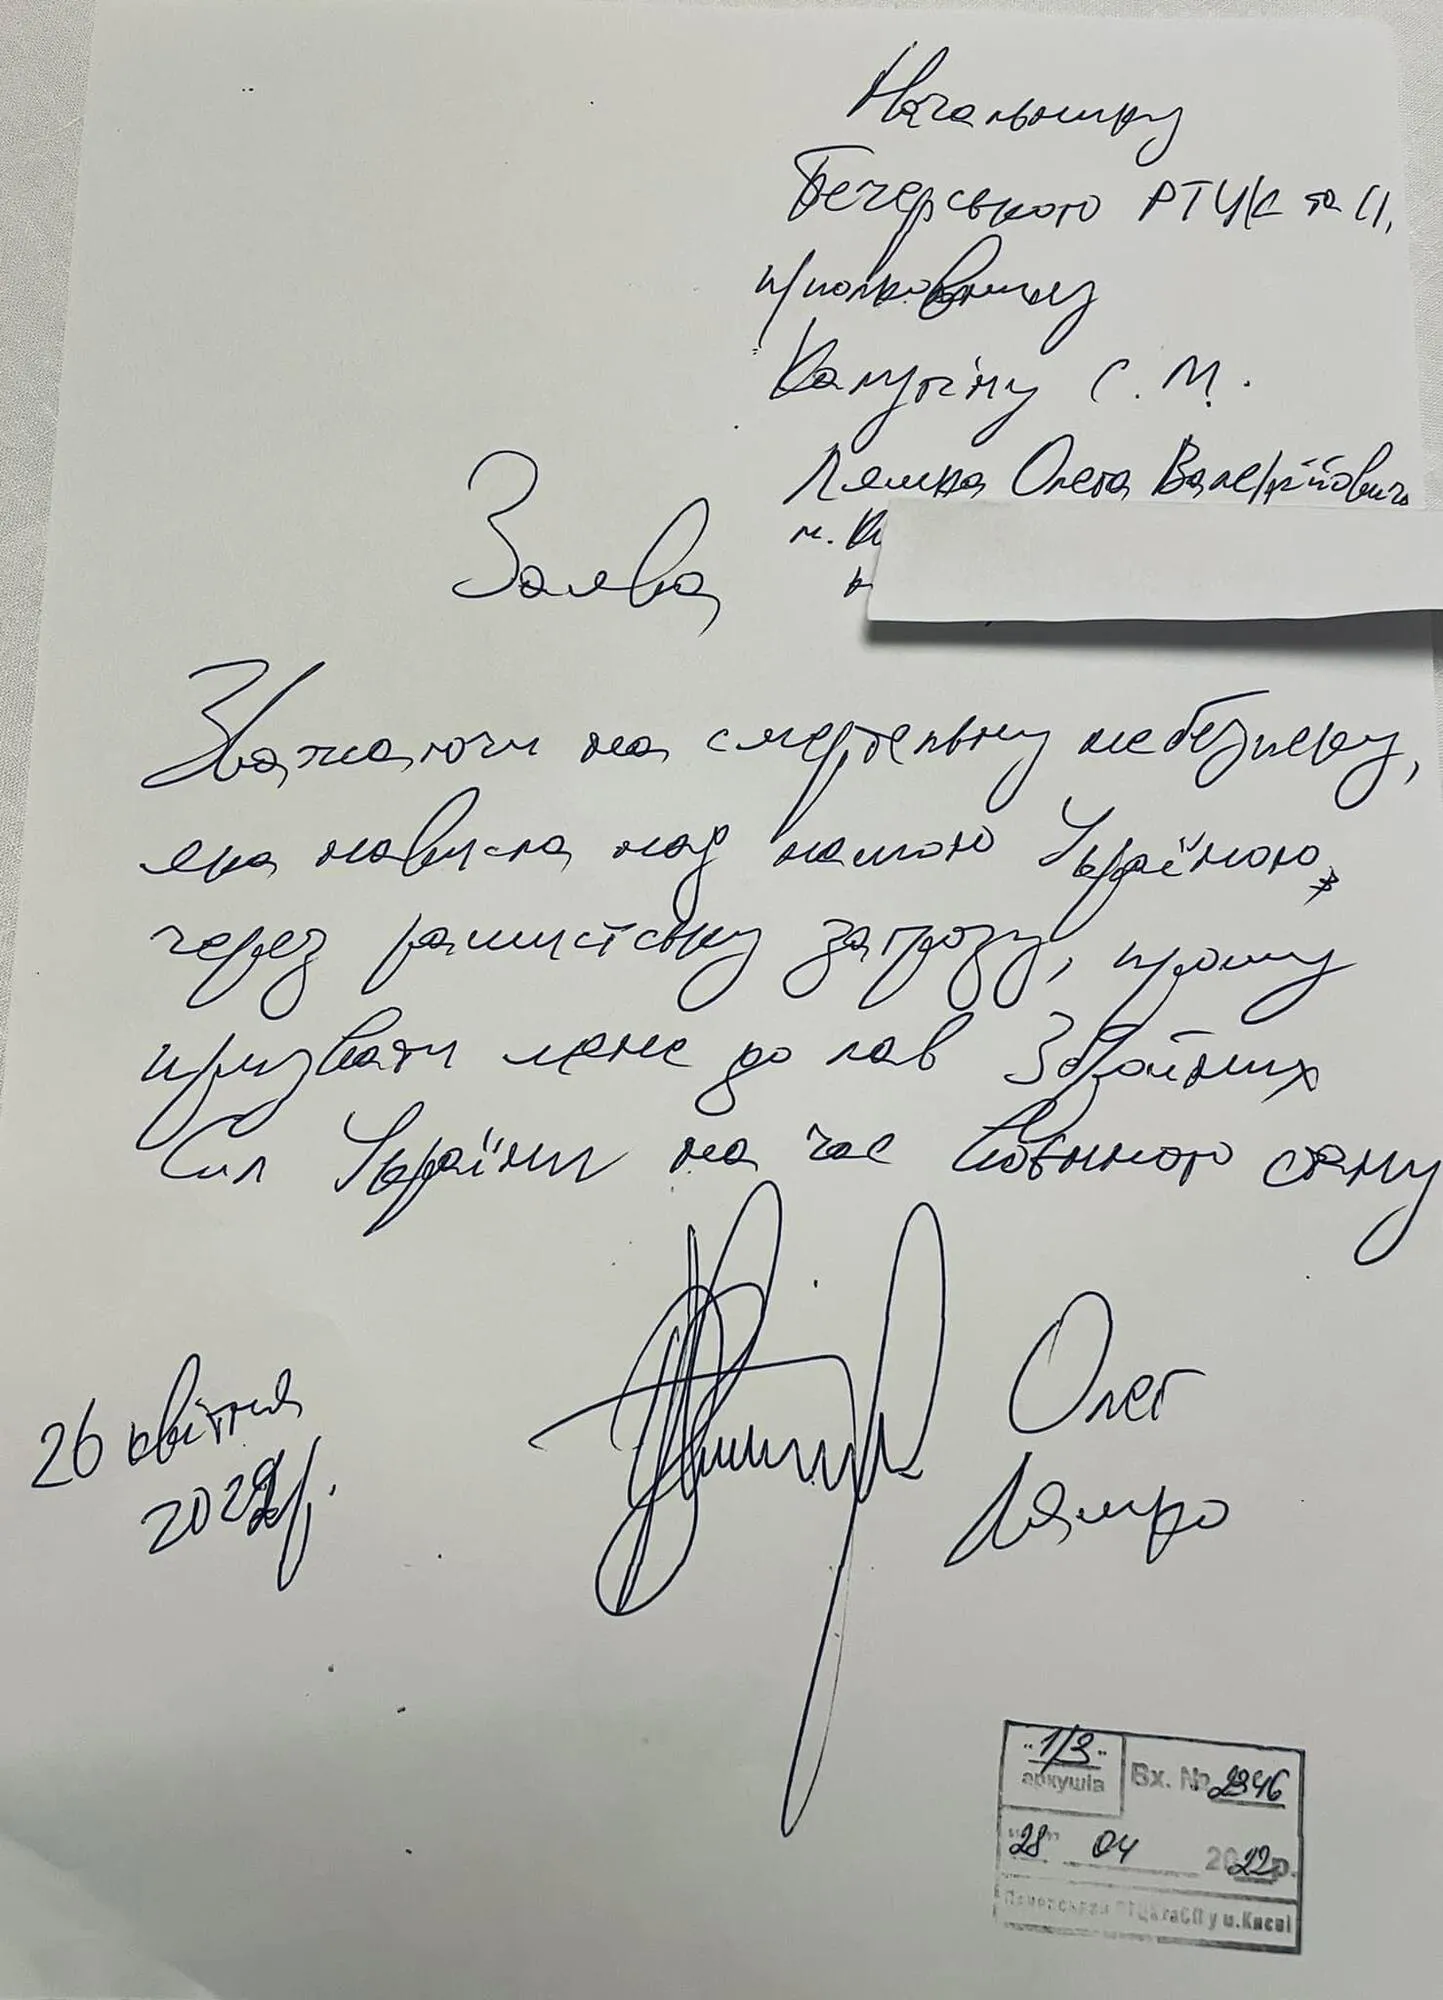 Начальнику
Печерського РТЦК та СП,
підполковнику
Калугіну С. М.
Ляшка Олега Валерійович
м. К
Заява
Зважаючи на смертельну небезпеку,
яка нависла над нашою Україною,
через рашистську загрозу, прошу
призвати мене до лав Збройних
Сил України на час воєнного стану
26 квітня
2022р.
Олег
Ляшко
"1/3"
аркушів
Вх. № 2346
"28" 04 2022р.
Печерський РТЦК та СП у м.Києві